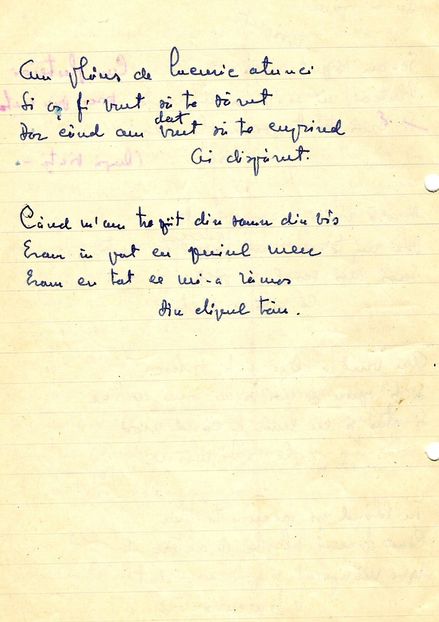 Am plâns de bucurie atunci
Si aș fi vrut să te sărut
Dar când am dat vrut să te cuprind
Ai dispărut.
Când m'am trezit din somn din vis
Eram în pat cu            meu
Eram cu tot ce mi-a rămas
Din chipul tău.